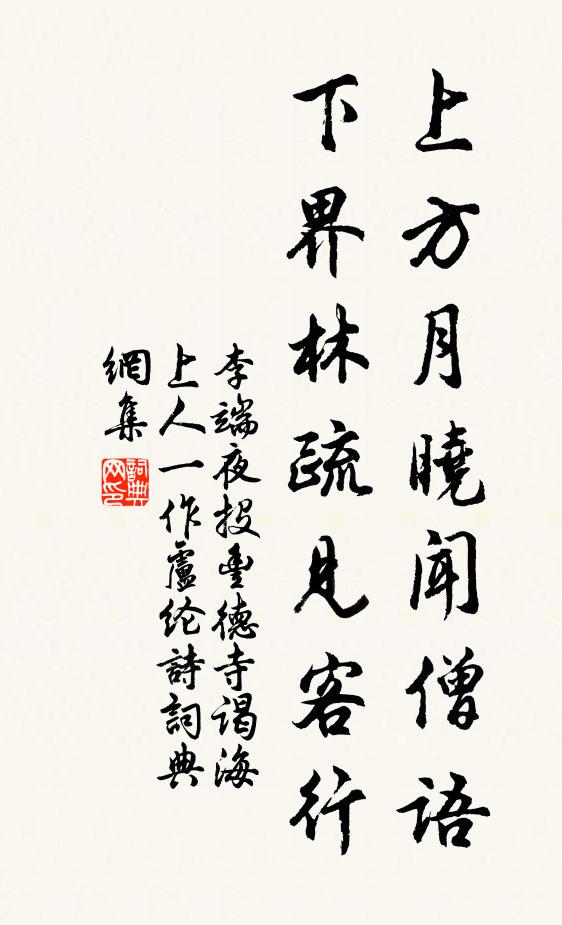 上方月曉聞僧語
下界林疏見客行
李端夜投豐德寺谒海
上人一作盧纶詩詞典
網集
詞典
网印